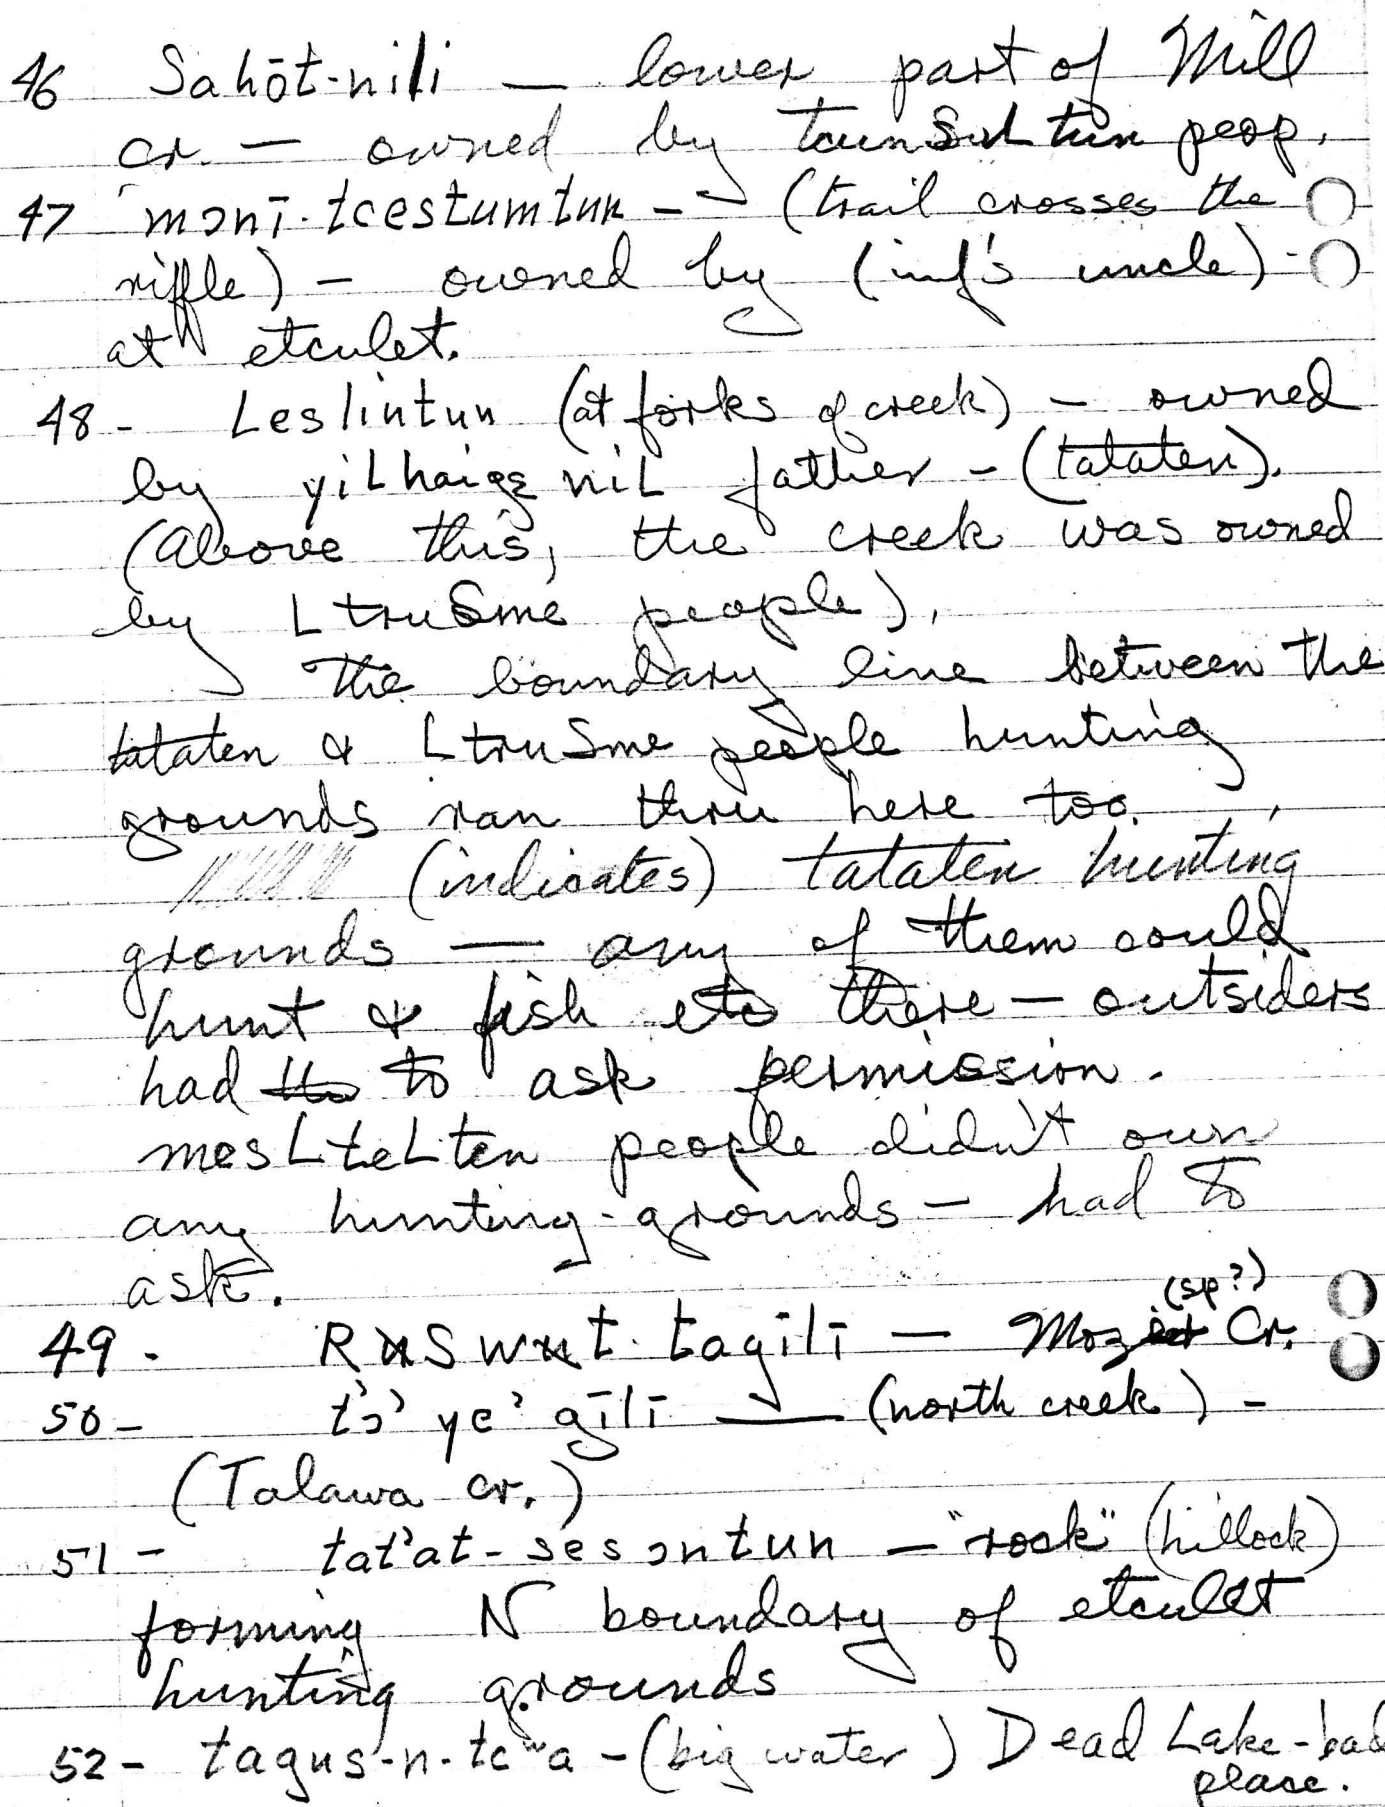 46 Sahōt-nili — lower part of Mill
cr. — owned by peop.
47 mɔnī-tcestumtun — (trail crosses the
riffle) — owned by (inf's uncle) -
at etculet.
48 - Leslintun (at forks of creek) — owned
by yiLhaigɛ niL father - (tataten).
(Above this, the creek was owned
by LtruSme people).
The boundary line between the
tataten & LtruSme people hunting
grounds ran thru here too.
(indicates) tataten hunting
grounds — any of them could
hunt & fish etc there — outsiders
had to ask permission.
mesLteLten people didn't own
any hunting-grounds — had to
ask.
(sp?)
49 - Cr.
50 - t'ɔ' ye' gīlī — (north creek) -
(Talawa cr.)
51 - tat'at-sesɔntun — "rock" (hillock)
forming N boundary of etculet
hunting grounds
52 - (big water) Dead Lake - bad
place.